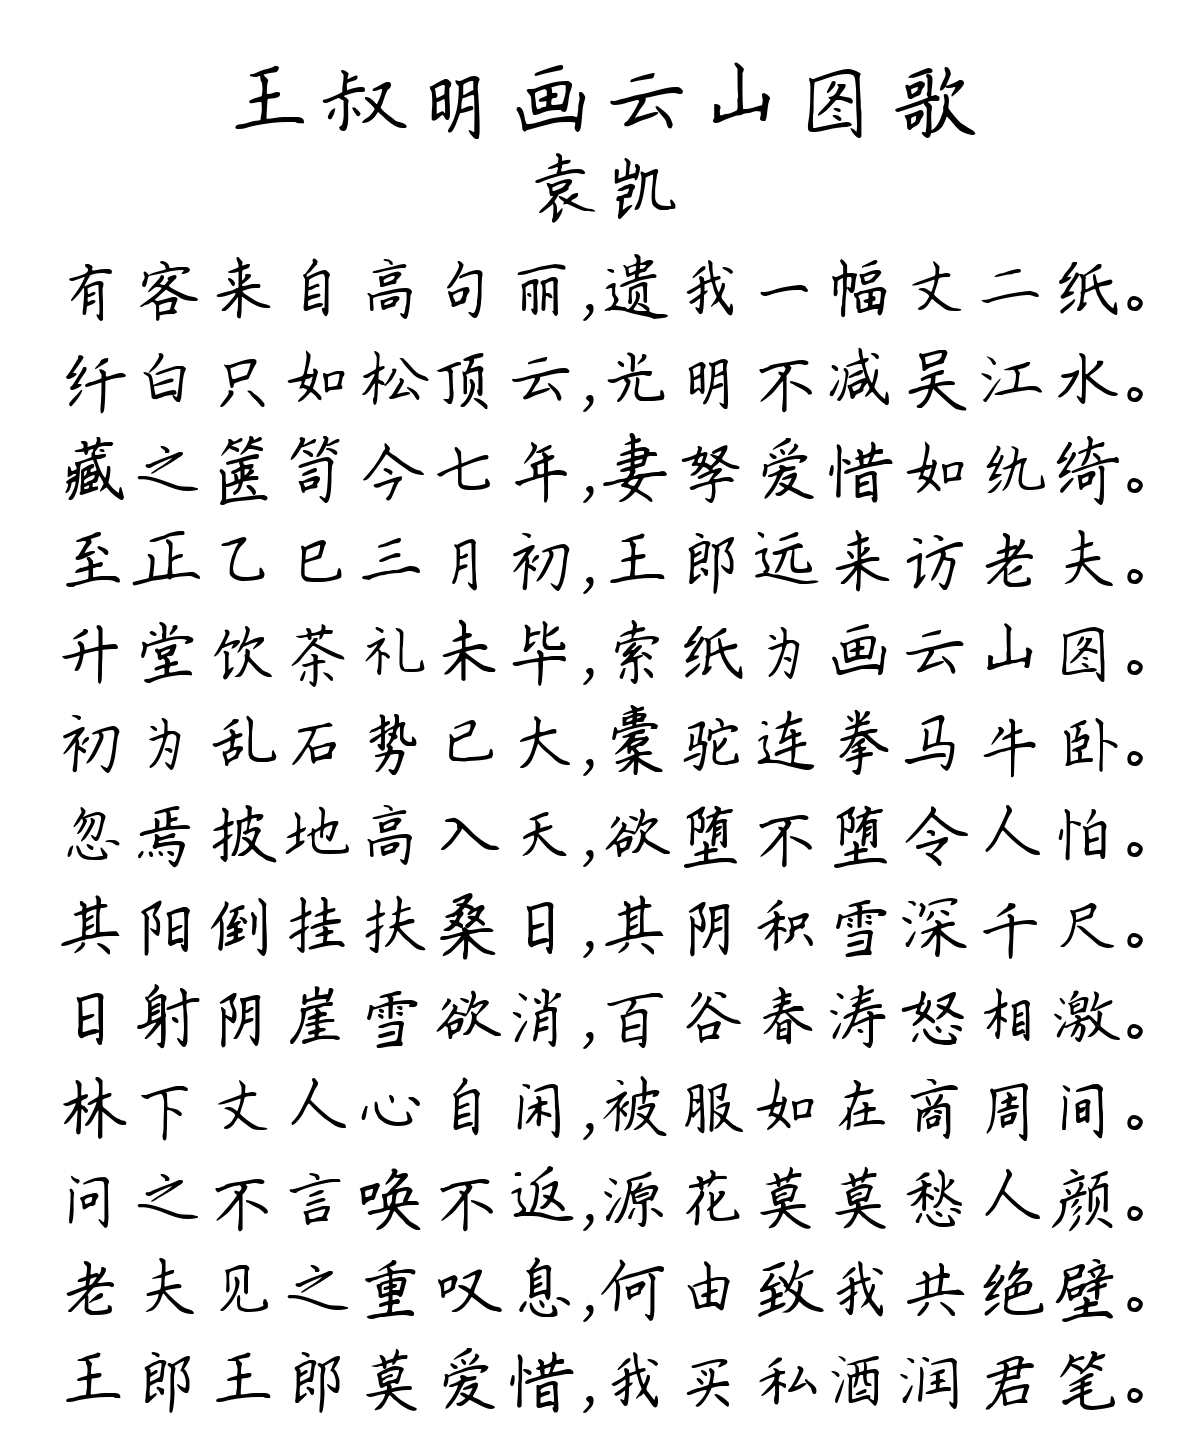 王叔明画云山图歌
袁凯
有客来自高句丽,遗我一幅丈二纸。
纤白只如松顶云,光明不减吴江水。
藏之箧笥今七年,妻孥爱惜如纨绮。
至正乙巳三月初,王郎远来访老夫。
升堂饮茶礼未毕,索纸为画云山图。
初为乱石势已大,橐驼连拳马牛卧。
忽焉披地高入天,欲堕不堕令人怕。
其阳倒挂扶桑日,其阴积雪深千尺。
日射阴崖雪欲消,百谷春涛怒相激。
林下丈人心自闲,被服如在商周间。
问之不言唤不返,源花莫莫愁人颜。
老夫见之重叹息,何由致我共绝壁。
王郎王郎莫爱惜,我买私酒润君笔。